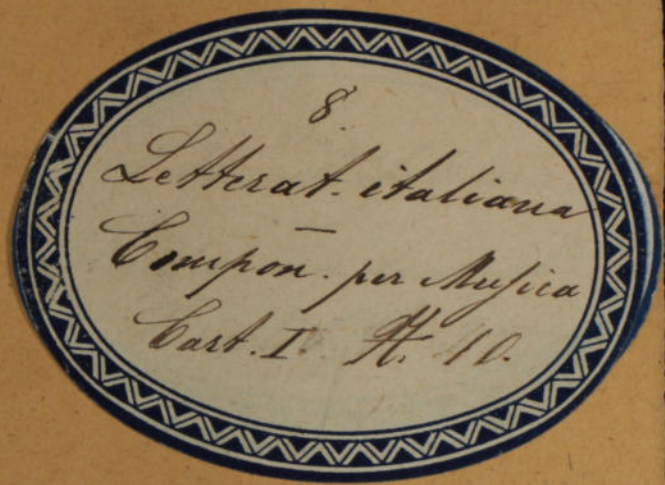 8.
Letterat. italiana
—
Compon. per Musica
Cart. I. N. 10.